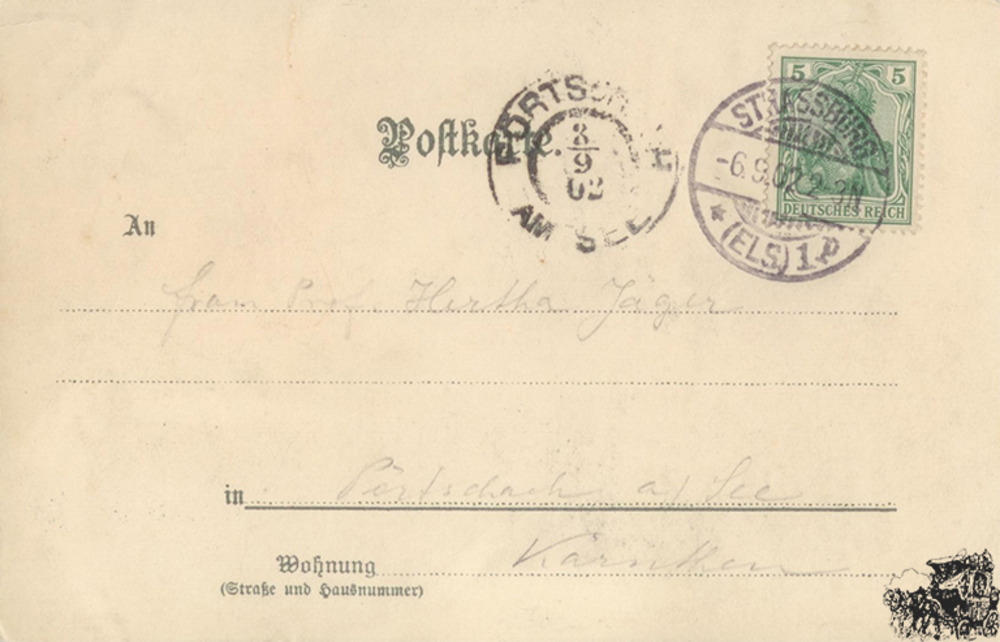 5 5
DEUTSCHES REICH
STRASSBURG
-6.9.02.2-3N
* (ELS) 1.p
PÖRTSCHACH
8
9
02
AM SEE
Postkarte.
An
Frau Prof. Hertha Jäger
in Pörtschach a/ See
Kärnthen
Wohnung
(Straße und Hausnummer)